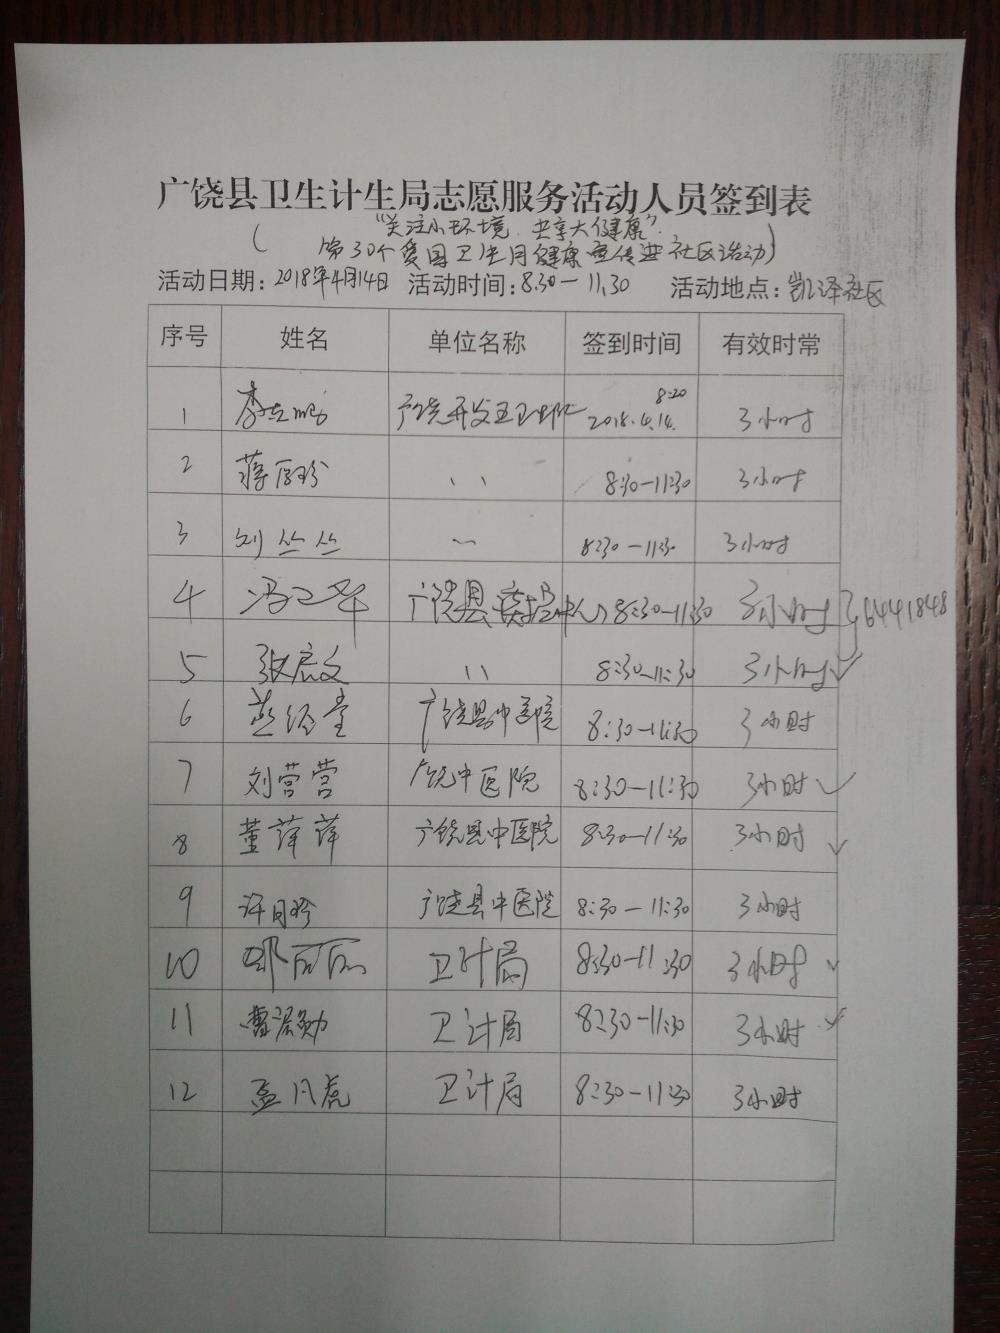 广饶县卫生计生局志愿服务活动人员签到表
“关注小环境 共享大健康”
(第30个爱国卫生月健康宣传进社区活动)
活动日期:2018年4月14日 活动时间:8:30—11:30 活动地点:凯泽社区
序号 姓名 单位名称 签到时间 有效时常
8:20
1 李 广饶开发区卫 2018.4.14. 3小时
2 蒋 〃 8:30—11:30 3小时
3 刘丛丛 〃 8:30—11:30 3小时
4 冯 广饶县疾控中心 8:30—11:30 3小时 } 6441848
5 张 〃 8:30—11:30 3小时 ✓
6 广饶县中医院 8:30—11:30 3小时
7 刘营营 广饶中医院 8:30—11:30 3小时 ✓
8 董萍萍 广饶县中医院 8:30—11:30 3小时 ✓
9 许月珍 广饶县中医院 8:30—11:30 3小时
10 丽丽 卫计局 8:30—11:30 3小时 ✓
11 曹 卫计局 8:30—11:30 3小时 ✓
12 孟凡虎 卫计局 8:30—11:30 3小时